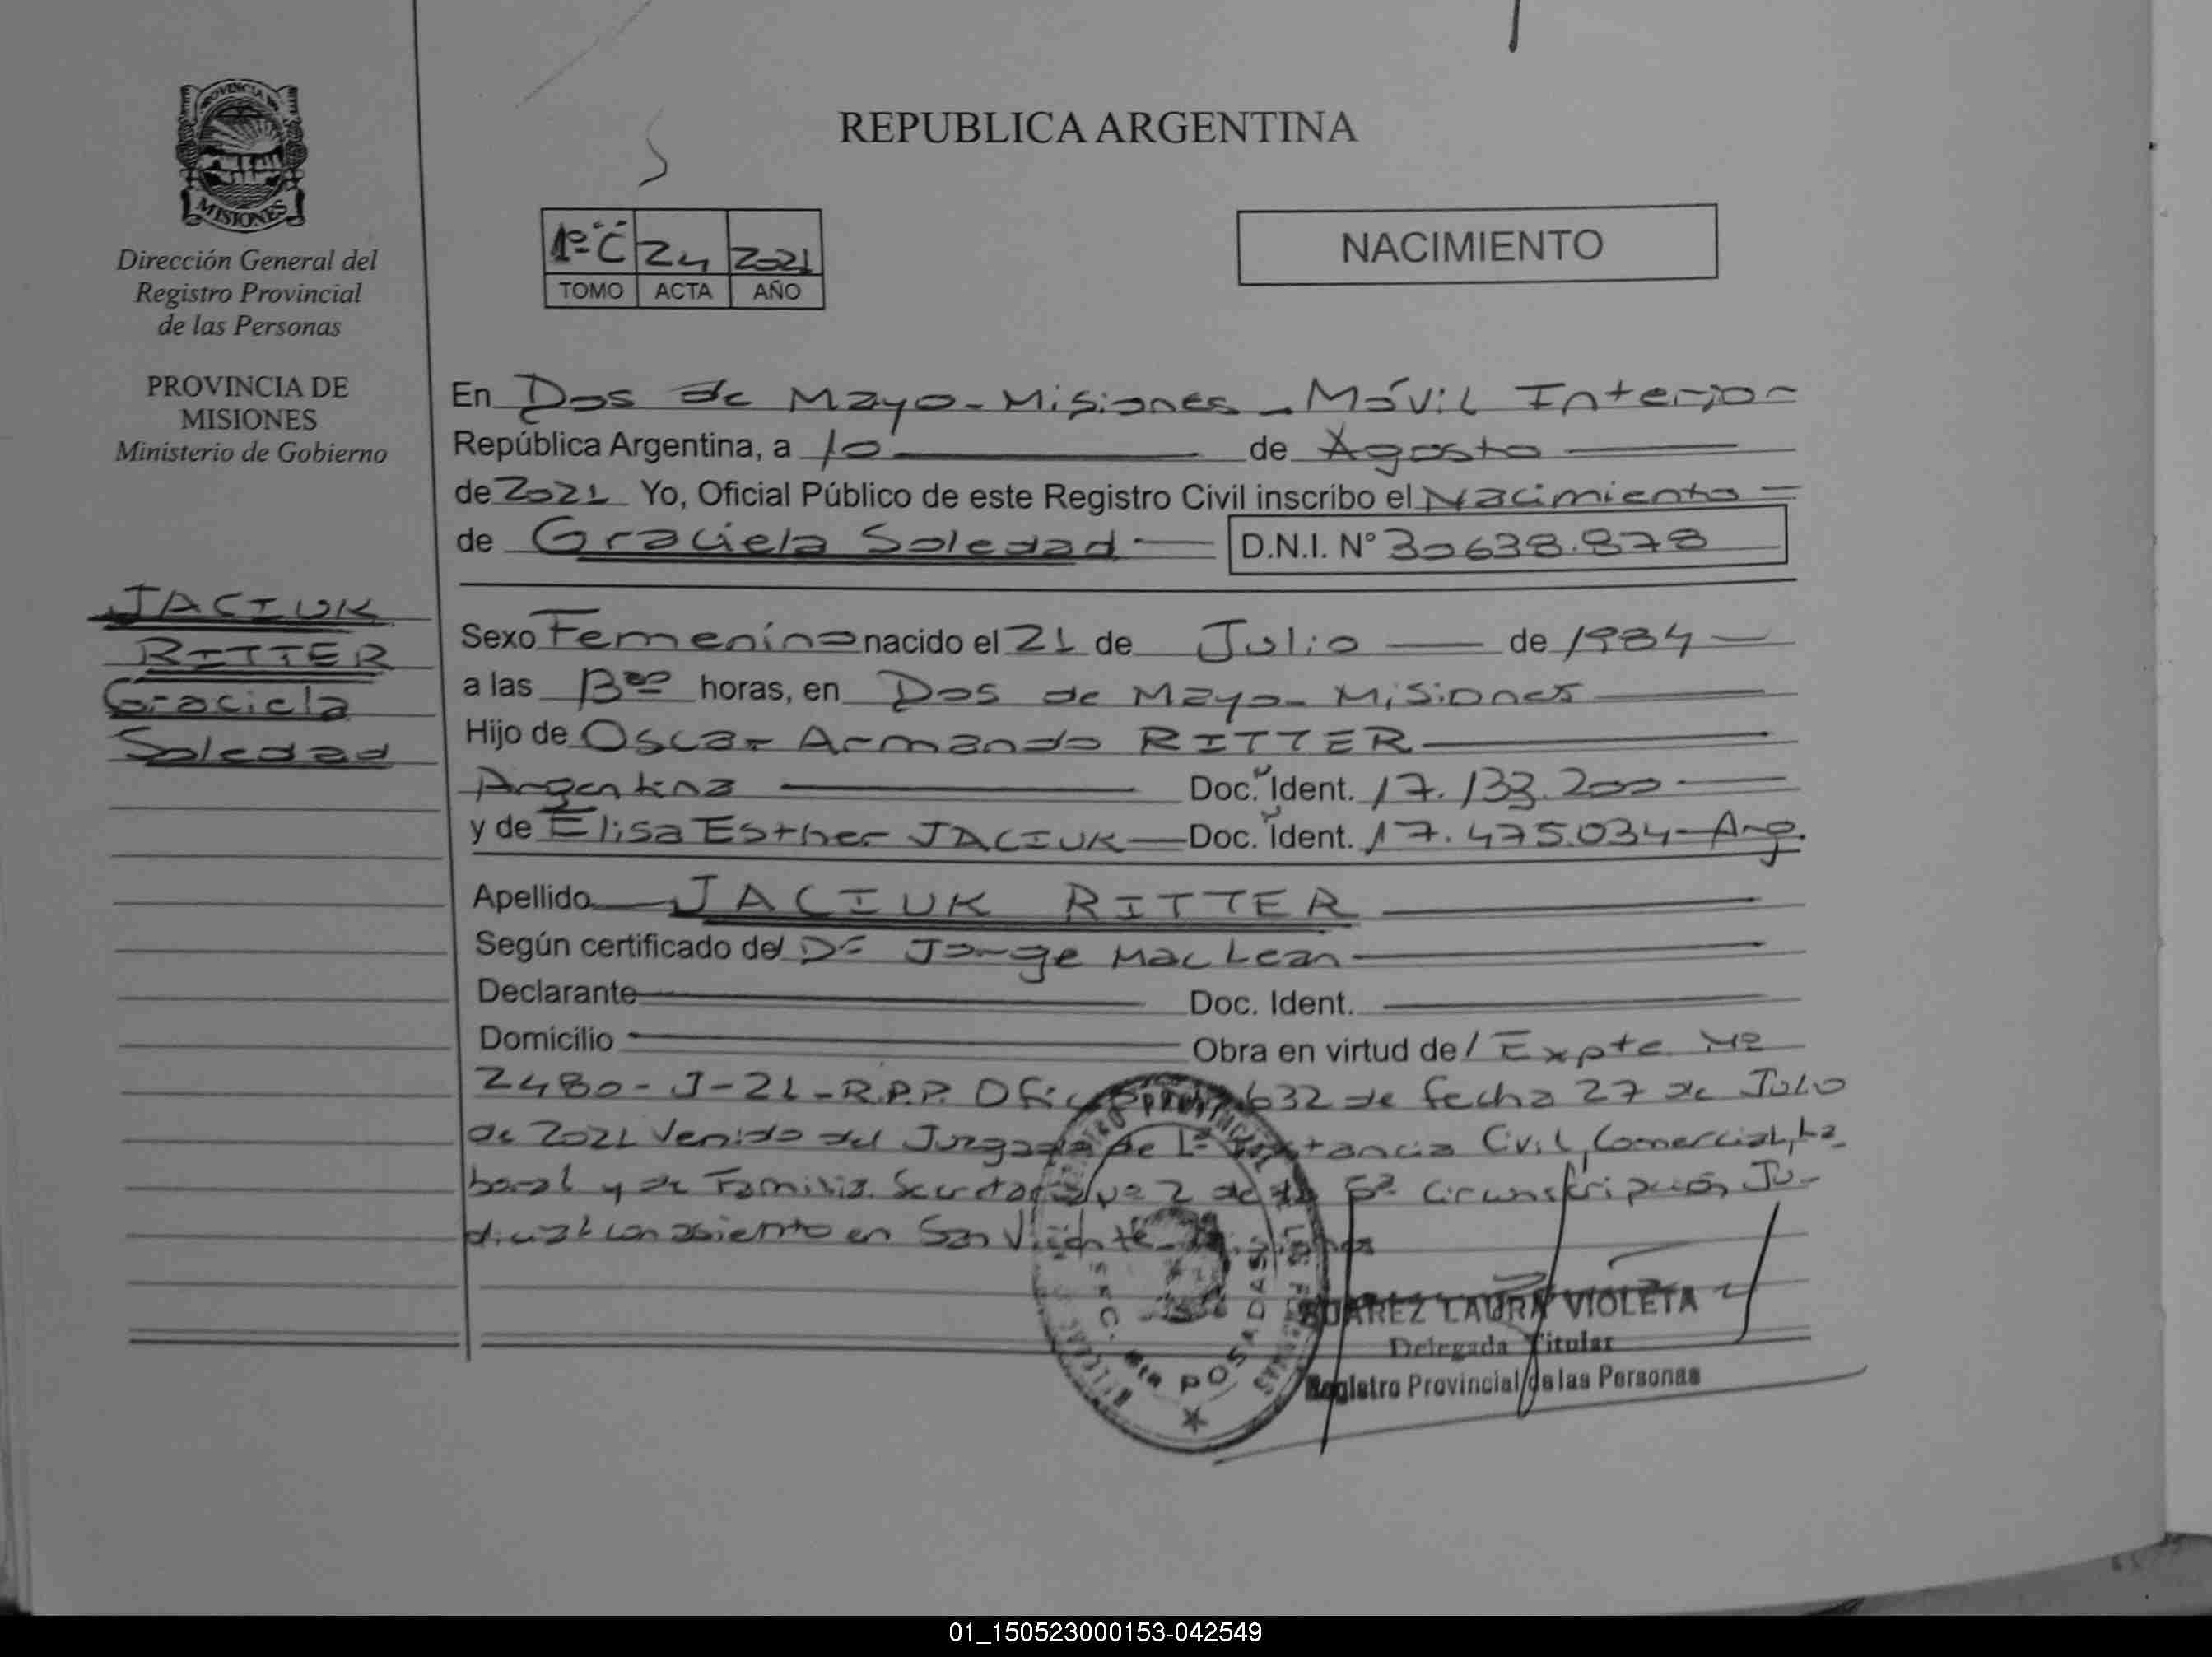 PROVINCIA DE
MISIONES
Dirección General del
Registro Provincial
de las Personas
PROVINCIA DE
MISIONES
Ministerio de Gobierno
JACIUK
RITTER
Graciela
Soledad
REPUBLICA ARGENTINA
1º "C" 24 2021
TOMO ACTA AÑO
NACIMIENTO
En Dos de Mayo - Misiones - Móvil Interior
República Argentina, a 10 de Agosto
de 2021 Yo, Oficial Público de este Registro Civil inscribo el Nacimiento
de Graciela Soledad D.N.I. Nº 30638.878
Sexo Femenino nacido el 21 de Julio de 1984
a las horas, en Dos de Mayo - Misiones
Hijo de Oscar Armando RITTER
Argentina Doc. Ident. 17.133.200
y de Elisa Esther JACIUK Doc. Ident. 17.475.034 - Arg.
Apellido JACIUK RITTER
Según certificado del Dr Jorge Mac Lean
Declarante Doc. Ident.
Domicilio Obra en virtud de / Expte Nº
2480 - J - 21 - R.P.P. 632 de fecha 27 de Julio
de 2021 Venido del Juzgado de 1ª Instancia Civil, Comercial, La-
boral y de Familia. Secretaría Nº 2 de la 5ª Circunscripción Ju-
dicial con asiento en San Vicente - Misiones
SUAREZ LAURA VIOLETA
Delegada Titular
Registro Provincial de las Personas
POSADAS
01_150523000153-042549